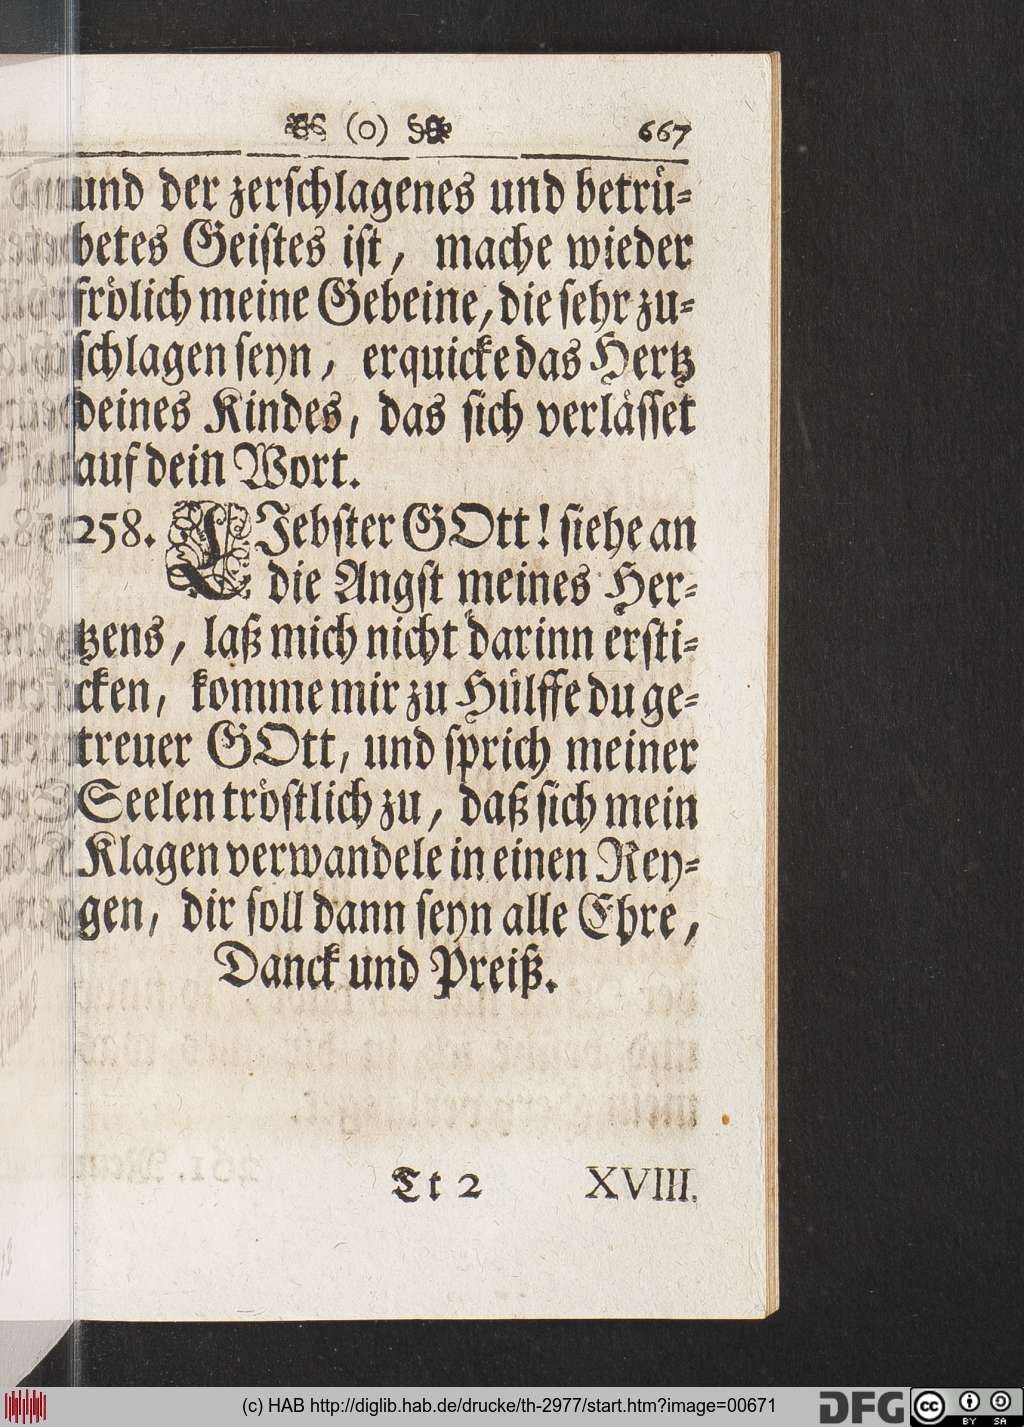 (o) 667
und der zerſchlagenes und betrü-
betes Geiſtes iſt, mache wieder
frölich meine Gebeine, die ſehr zu-
ſchlagen ſeyn, erquicke das Hertz
deines Kindes, das ſich verläſſet
auf dein Wort.
258. LJebſter GOtt! ſiehe an
die Angſt meines Her-
tzens, laß mich nicht darinn erſti-
cken, komme mir zu Hülffe du ge-
treuer GOtt, und ſprich meiner
Seelen tröſtlich zu, daß ſich mein
Klagen verwandele in einen Rey-
gen, dir ſoll dann ſeyn alle Ehre,
Danck und Preiß.
Tt 2 XVIII.
(c) HAB http://diglib.hab.de/drucke/th-2977/start.htm?image=00671
DFG cc BY SA